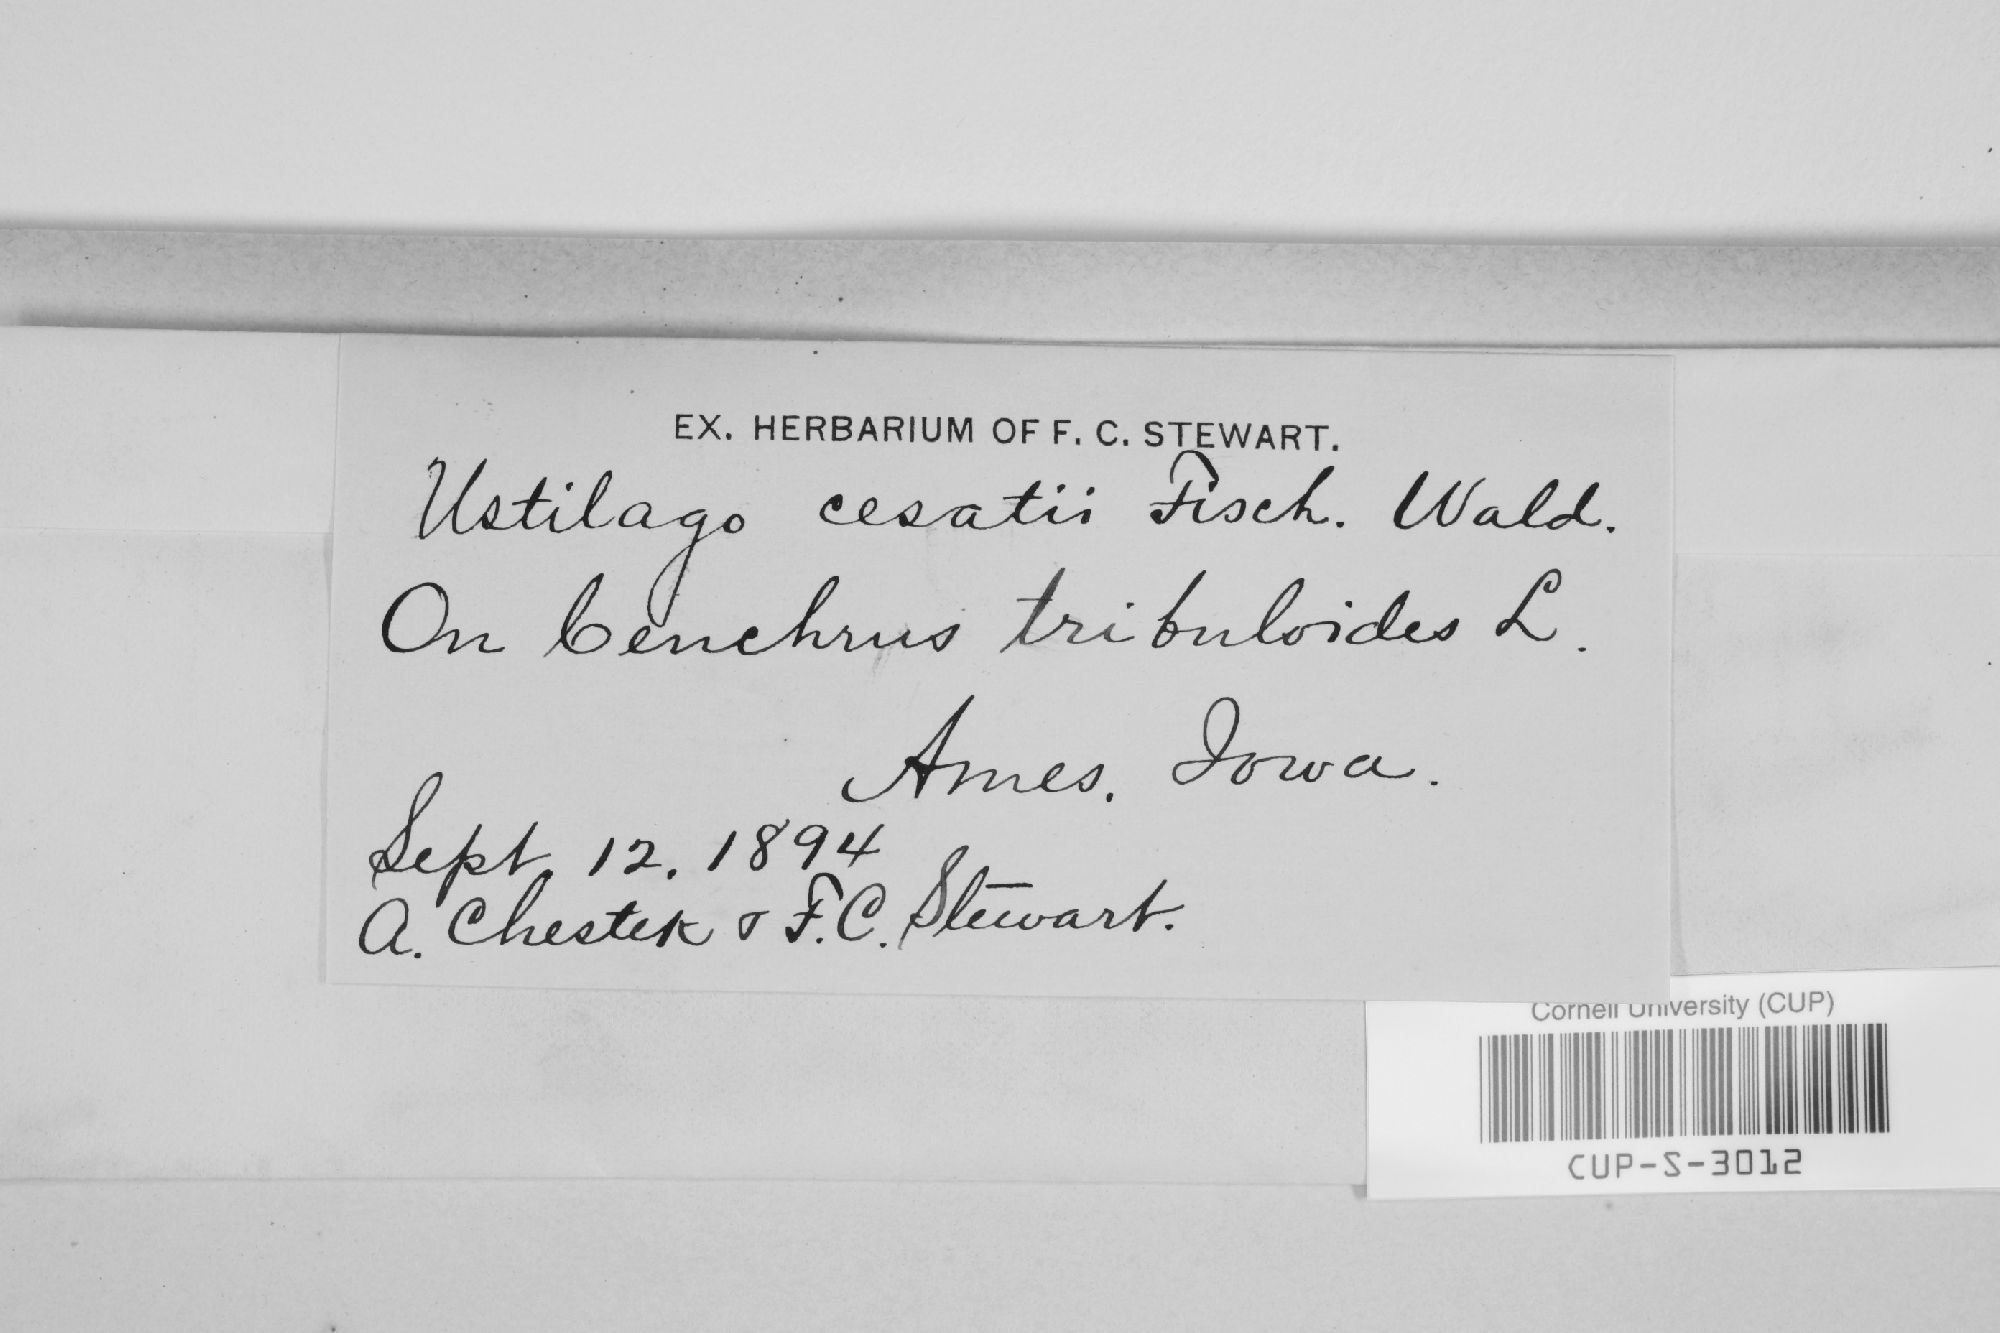 EX. HERBARIUM OF F. C. STEWART.
Ustilago cesatii Fisch. Wald.
On Cenchrus tribuloides L.
Ames, Iowa.
Sept. 12, 1894
A. Chestek & F.C. Stewart.
Cornell University (CUP)
CUP-S-3012